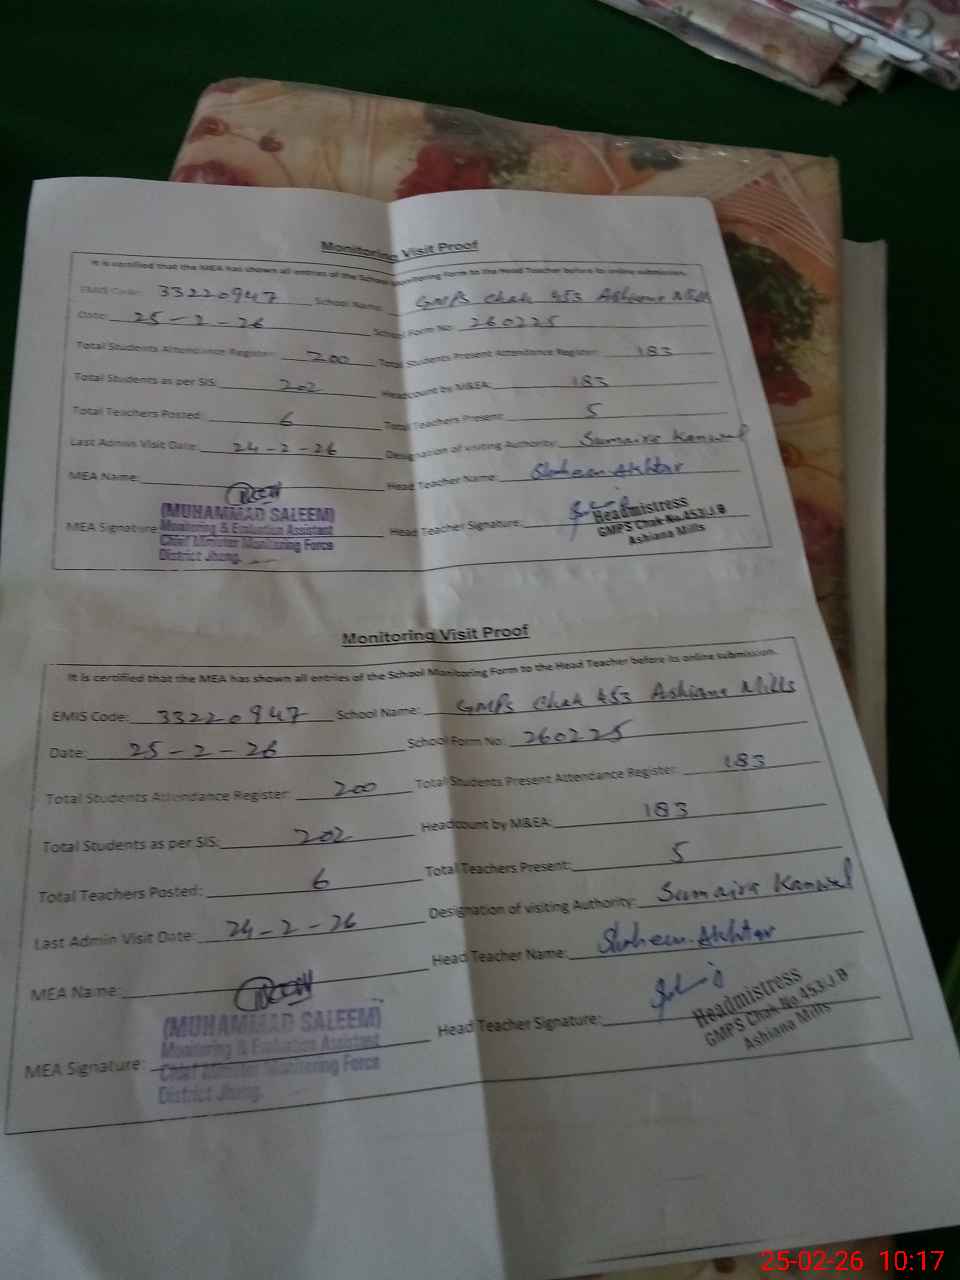 Monitoring Visit Proof
It is certified that the MEA has shown all entries of the School Monitoring Form to the Head Teacher before its online submission.
EMIS Code: 33220947 School Name: GMPS Chak 453 Ashiana Mills
Date: 25-2-26 School Form No: 260225
Total Students Attendance Register: 200 Total Students Present Attendance Register: 183
Total Students as per SIS: 202 Headcount by M&EA: 183
Total Teachers Posted: 6 Total Teachers Present: 5
Last Admin Visit Date: 24-2-26 Designation of visiting Authority: Sumaira Kanwal
MEA Name: Head Teacher Name: Shaheen Akhtar
MEA Signature Head Teacher Signature:
(MUHAMMAD SALEEM)
Monitoring & Evaluation Assistant
Chief Minister Monitoring Force
District Jhang.
Headmistress
GMPS Chak No.453/J.B
Ashiana Mills
Monitoring Visit Proof
It is certified that the MEA has shown all entries of the School Monitoring Form to the Head Teacher before its online submission.
EMIS Code: 33220947 School Name: GMPS Chak 453 Ashiana Mills
Date: 25-2-26 School Form No: 260225
Total Students Attendance Register: 200 Total Students Present Attendance Register: 183
Total Students as per SIS: 202 Headcount by M&EA: 183
Total Teachers Posted: 6 Total Teachers Present: 5
Last Admin Visit Date: 24-2-26 Designation of visiting Authority: Sumaira Kanwal
MEA Name: Head Teacher Name: Shaheen Akhtar
MEA Signature: Head Teacher Signature:
(MUHAMMAD SALEEM)
Monitoring & Evaluation Assistant
Chief Minister Monitoring Force
District Jhang.
Headmistress
GMPS Chak No.453/J.B
Ashiana Mills
25-02-26 10:17